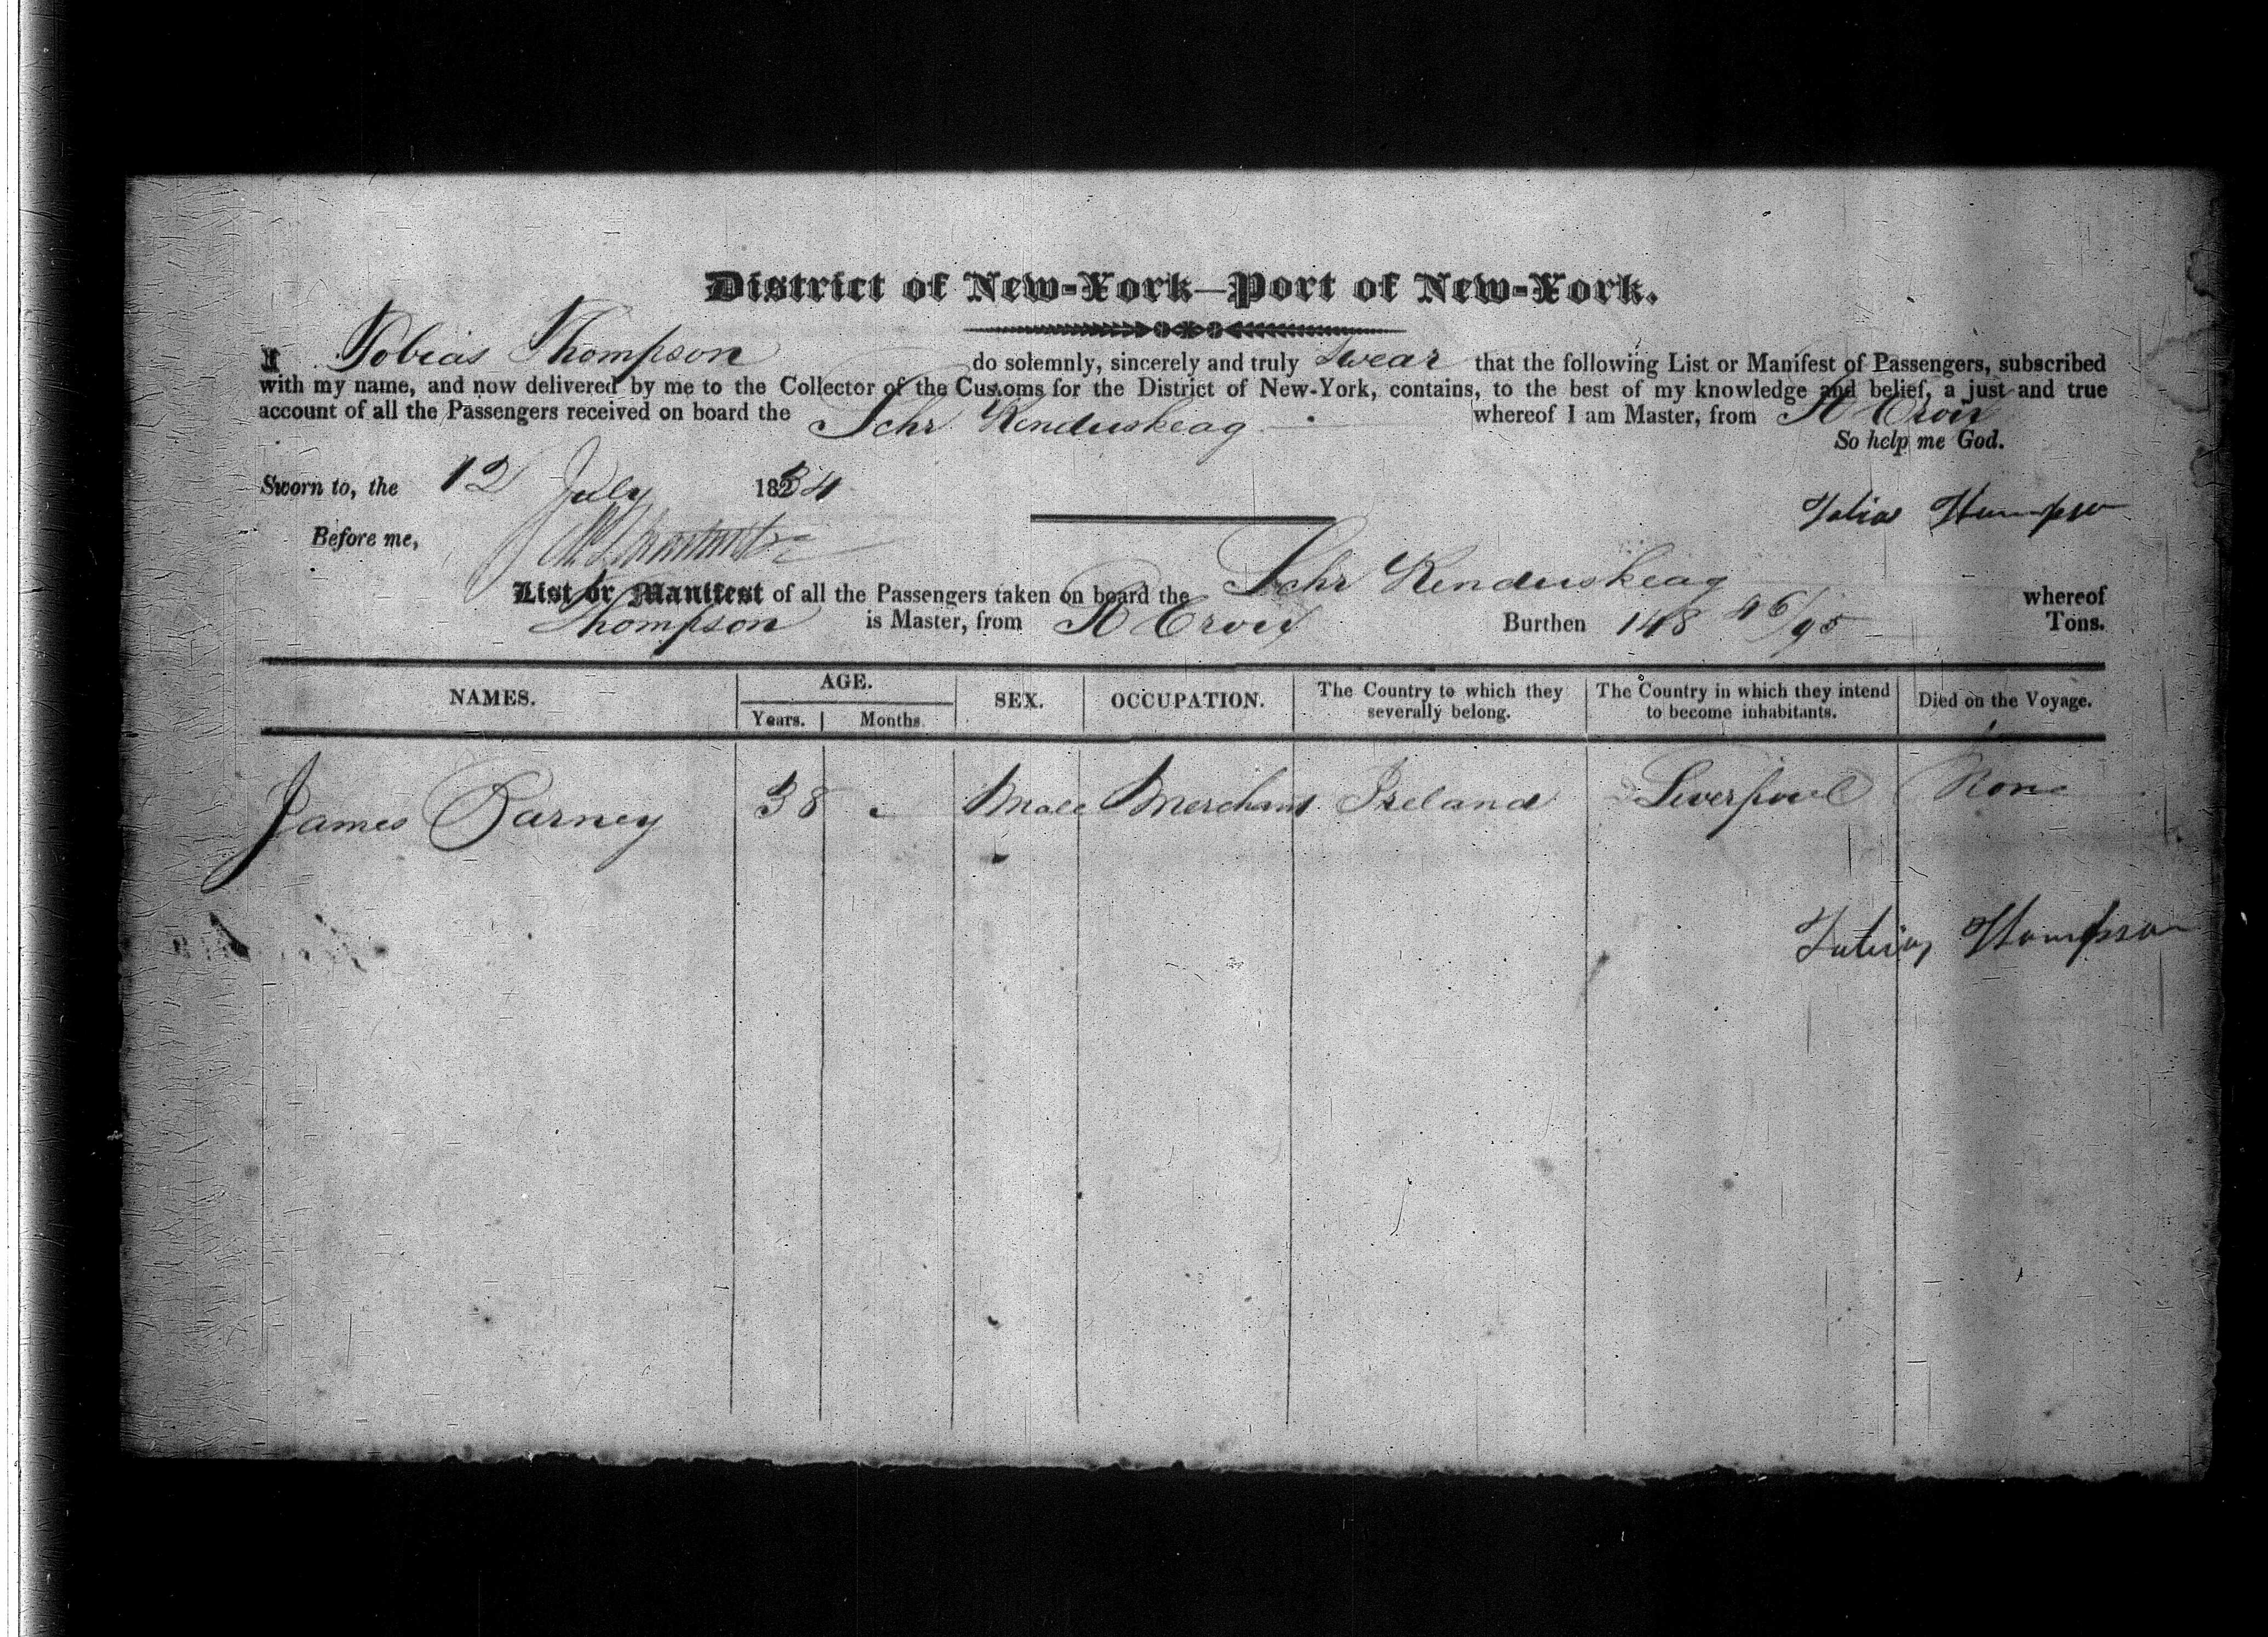 District of New-York—Port of New-York.
I Tobias Thompson do solemnly, sincerely and truly Swear that the following List or Manifest of Passengers, subscribed
with my name, and now delivered by me to the Collector of the Customs for the District of New-York, contains, to the best of my knowledge and belief, a just and true
account of all the Passengers received on board the Schr Kenduskeag whereof I am Master, from St Croix
So help me God.
Sworn to, the 12 July 1834
Tobias Thompson
Before me,
List or Manifest of all the Passengers taken on board the Schr Kenduskeag whereof
Thompson is Master, from St Croix Burthen 148 46/95 Tons.
NAMES. AGE. Years. Months. SEX. OCCUPATION. The Country to which they severally belong. The Country in which they intend to become inhabitants. Died on the Voyage.
James Barney 38 Male Merchant Ireland Liverpool None
Tobias Thompson